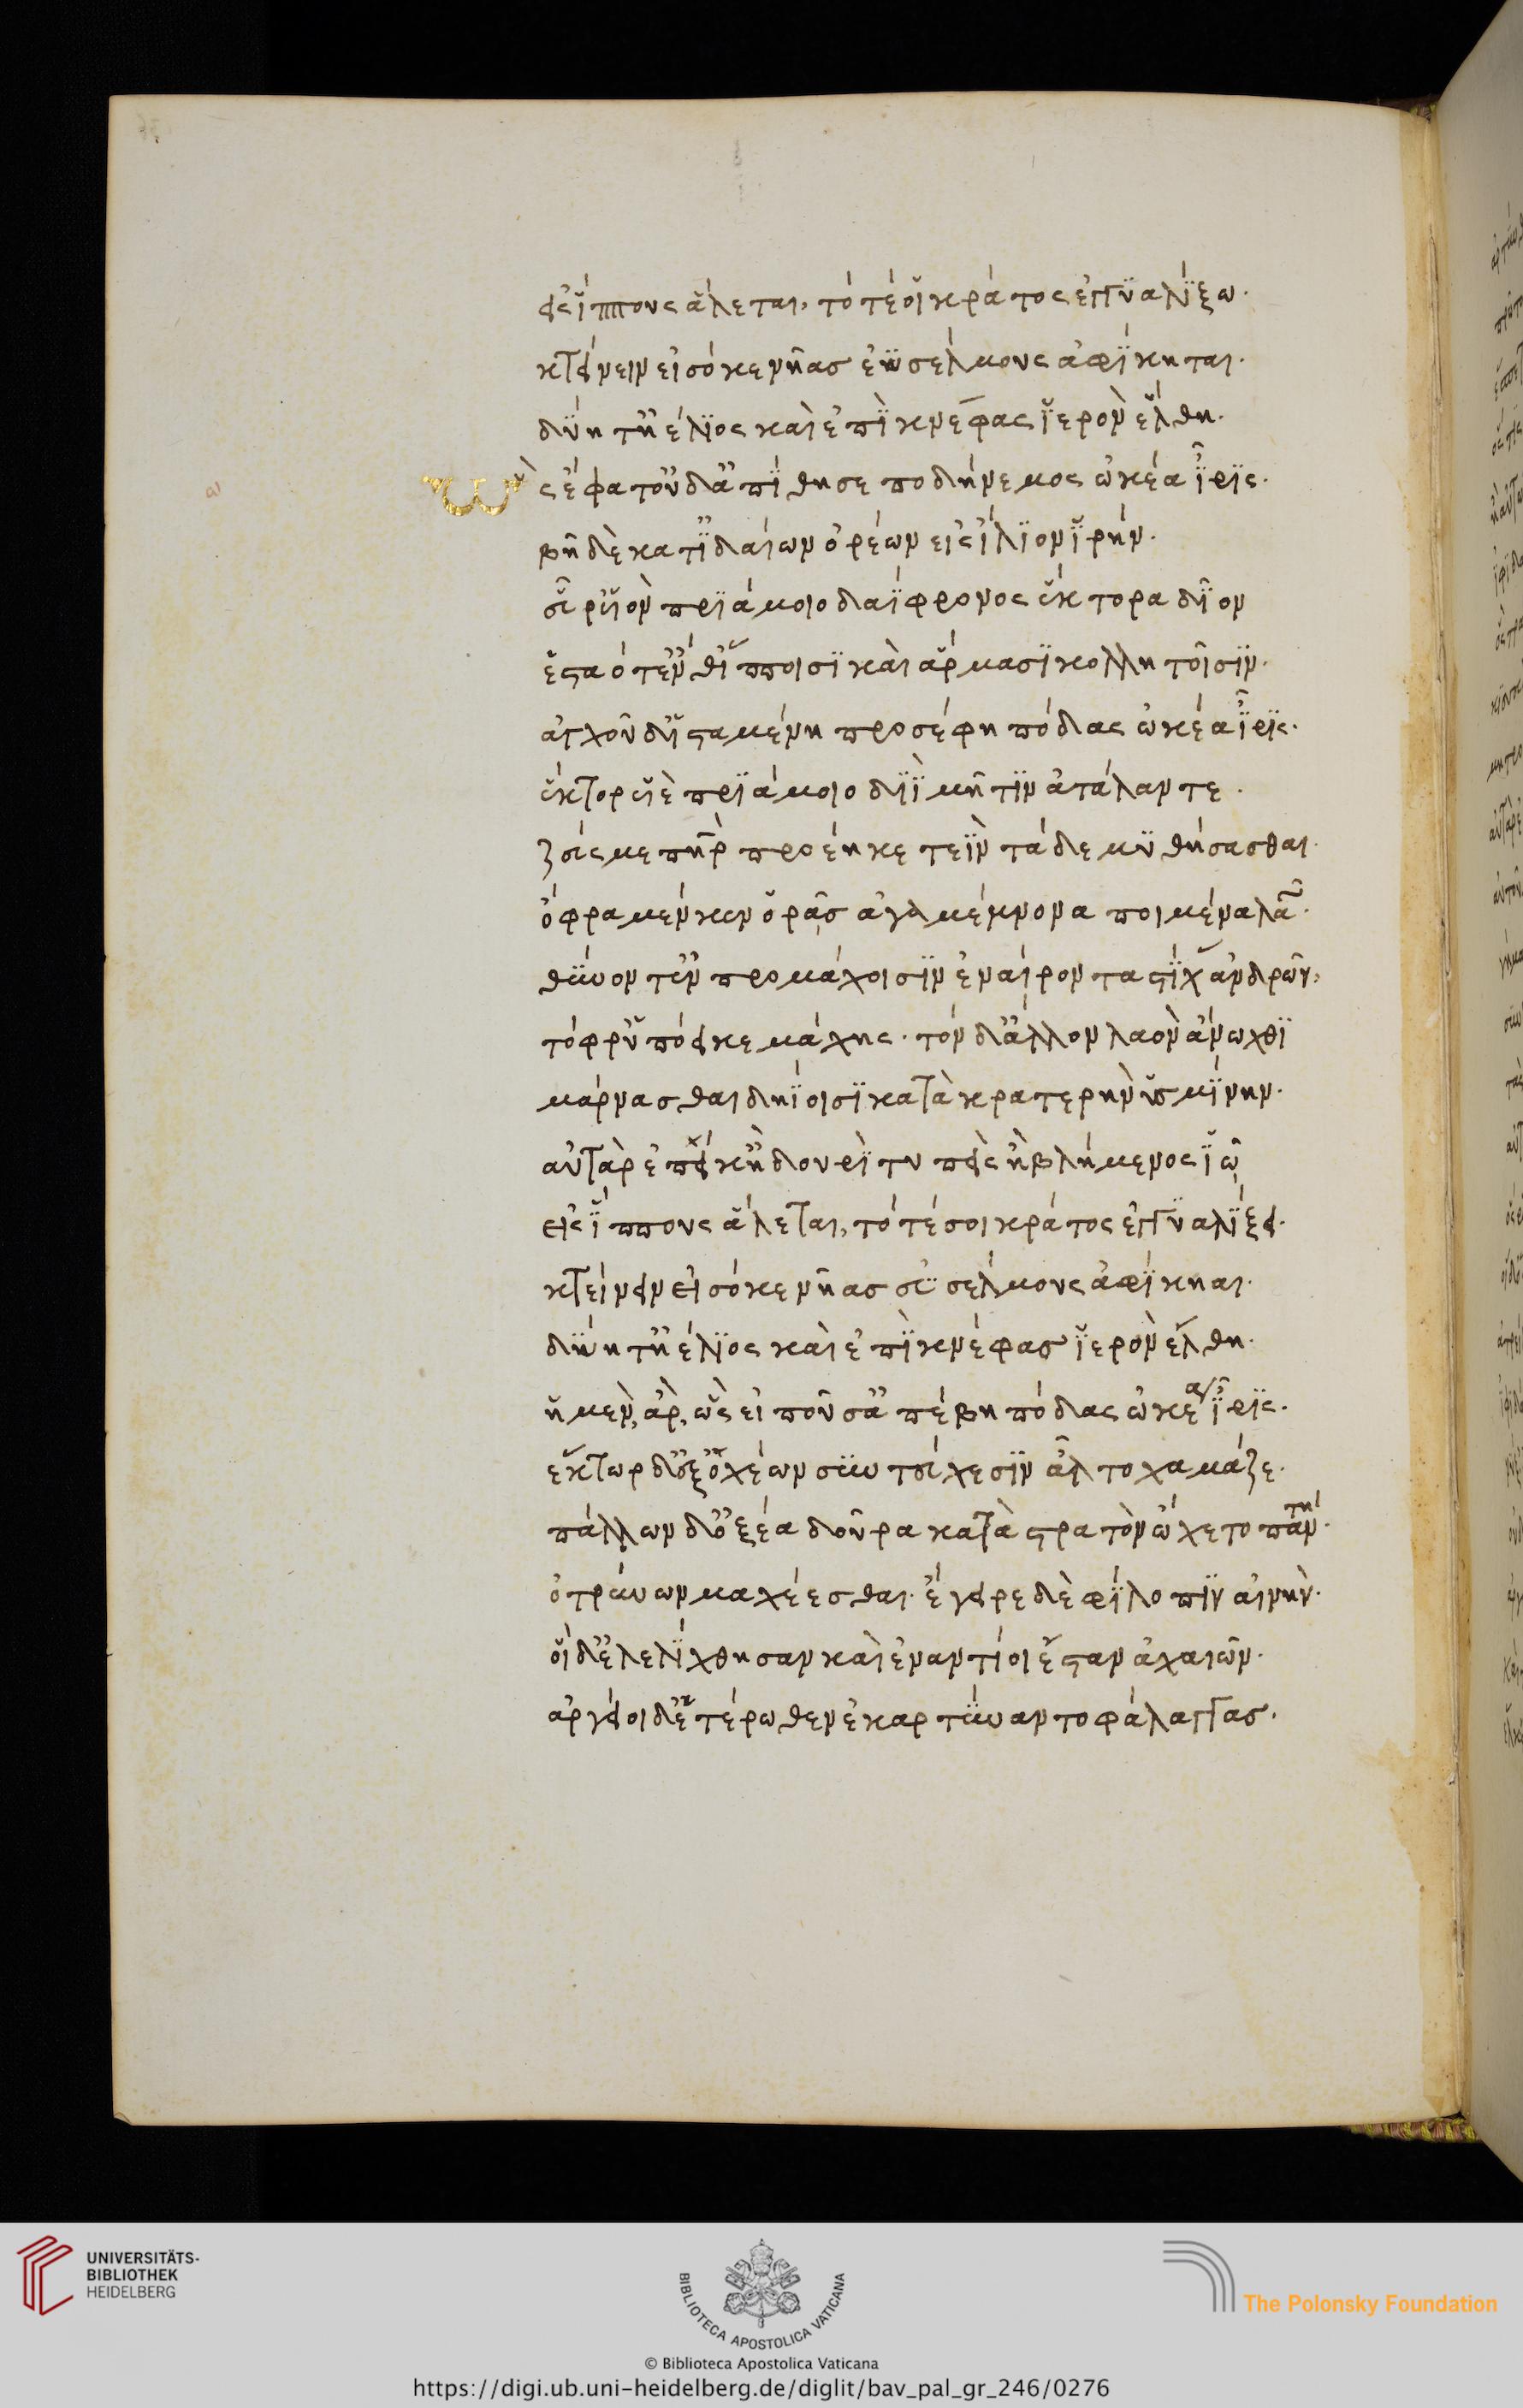 εἰς ἵππους ἅλεται, τότέ οἱ κράτος ἐγγυαλίξω.
κτείνειν εἰσόκε νῆας ἐϋσέλμους ἀφίκηται.
δύη τ' ἠέλιος καὶ ἐπὶ κνέφας ἱερὸν ἔλθη.
Ὣς ἔφατ' οὐδ' ἀπίθησε ποδήνεμος ὠκέα ἶρις.
βῆ δὲ κατ' ἰδαίων ὀρέων εἰς ἴλιον ἱρήν.
εὗρ' υἱὸν πριάμοιο δαΐφρονος ἕκτορα δῖον
ἑσταότ' ἔν θ' ἵπποισι καὶ ἅρμασι κολλητοῖσιν.
ἀγχοῦ δ' ἱσταμένη προσέφη πόδας ὠκέα ἶρις.
ἕκτορ υἱὲ πριάμοιο διῒ μῆτιν ἀτάλαντε.
ζεύς με πατὴρ προέηκε τεῒν τάδε μυθήσασθαι.
ὄφρα μέν κεν ὁρᾶς ἀγαμέμνονα ποιμένα λαῶν.
θύνοντ' ἐν προμάχοισιν ἐναίροντα στίχας ἀνδρῶν,
τόφρ' ὑπόεικε μάχης. τὸν δ' ἄλλον λαὸν ἄνωχθι
μάρνασθαι δηΐοισι κατὰ κρατερὴν ὑσμίνην.
αὐτὰρ ἐπεί κ' ἢ δουρὶ τυπεὶς ἢ βλήμενος ἰῶ
εἰς ἵππους ἅλεται, τότέ σοι κράτος ἐγγυαλίξει.
κτείνειν εἰσόκε νῆας εὐσέλμους ἀφίκηαι.
δύη τ' ἠέλιος καὶ ἐπὶ κνέφας ἱερὸν ἔλθη.
ἡ μὲν, ἄρ, ὣς εἰποῦσ' ἀπέβη πόδας ὠκέα ἶρις.
ἕκτωρ δ' ἐξ ὀχέων σὺν τεύχεσιν ἆλτο χαμᾶζε.
πάλλων δ' ὀξέα δοῦρα κατὰ στρατὸν ᾤχετο πάντη.
ὀτρύνων μαχέεσθαι. ἔγειρε δὲ φύλοπιν αἰνήν.
οἱ δ' ἐλελίχθησαν καὶ ἐναντίοι ἔσταν ἀχαιῶν.
ἀργεῖοι δ' ἑτέρωθεν ἐκαρτύναντο φάλαγγας.
UNIVERSITÄTS-
BIBLIOTHEK
HEIDELBERG
BIBLIOTECA APOSTOLICA VATICANA
The Polonsky Foundation
© Biblioteca Apostolica Vaticana
https://digi.ub.uni-heidelberg.de/diglit/bav_pal_gr_246/0276